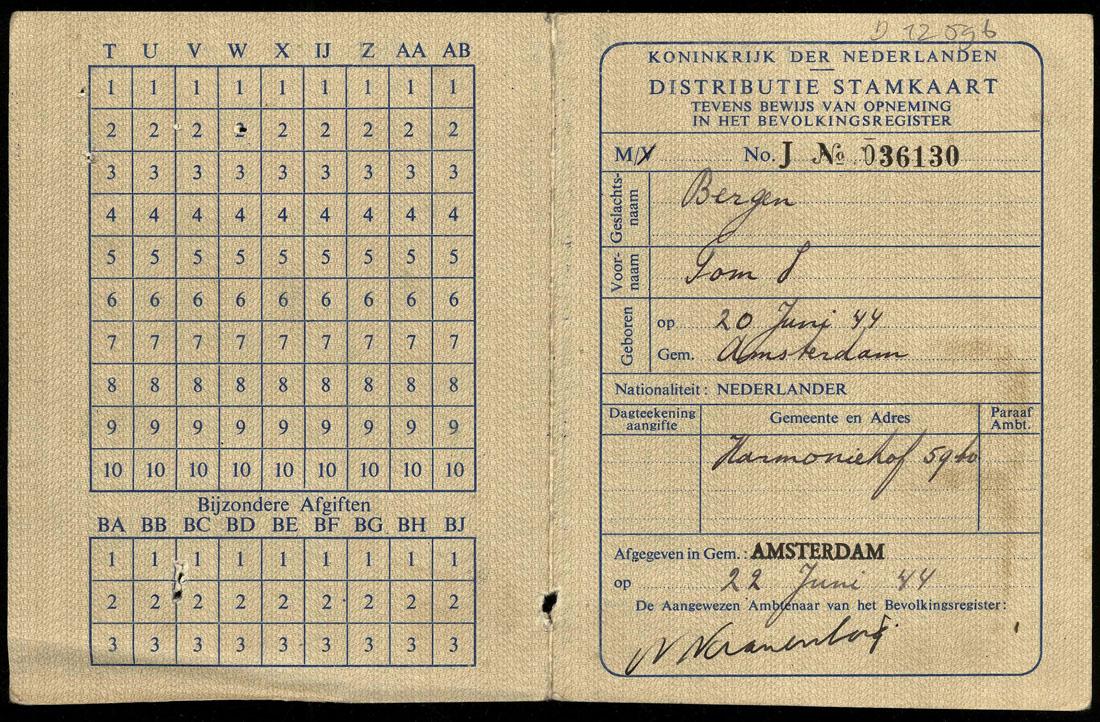 T U V W X IJ Z AA AB
1 1 1 1 1 1 1 1 1
2 2 2 2 2 2 2 2 2
3 3 3 3 3 3 3 3 3
4 4 4 4 4 4 4 4 4
5 5 5 5 5 5 5 5 5
6 6 6 6 6 6 6 6 6
7 7 7 7 7 7 7 7 7
8 8 8 8 8 8 8 8 8
9 9 9 9 9 9 9 9 9
10 10 10 10 10 10 10 10 10
Bijzondere Afgiften
BA BB BC BD BE BF BG BH BJ
1 1 1 1 1 1 1 1 1
2 2 2 2 2 2 2 2 2
3 3 3 3 3 3 3 3 3
D 12
KONINKRIJK DER NEDERLANDEN
DISTRIBUTIE STAMKAART
TEVENS BEWIJS VAN OPNEMING
IN HET BEVOLKINGSREGISTER
M/ No. J No 036130
Geslachts-
naam
Bergen
Voor-
naam
Tom
Geboren
op 20 Juni 44
Gem. Amsterdam
Nationaliteit: NEDERLANDER
Dagteekening
aangifte
Gemeente en Adres
Paraaf
Ambt.
Harmoniehof 59
Afgegeven in Gem.: AMSTERDAM
op 22 Juni 44
De Aangewezen Ambtenaar van het Bevolkingsregister: